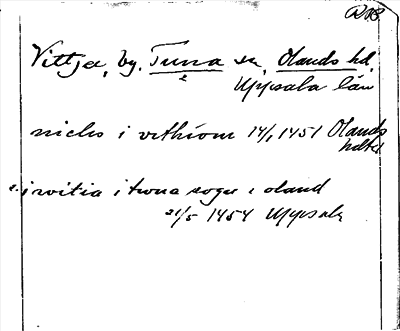 DMS
Vittja, by. Tuna sn, Olands hd,
Uppsala län
niclis i vithiom 14/1 1451 Olands
hdtd
i witia i twna sogn i oland
21/5 1454 Uppsala